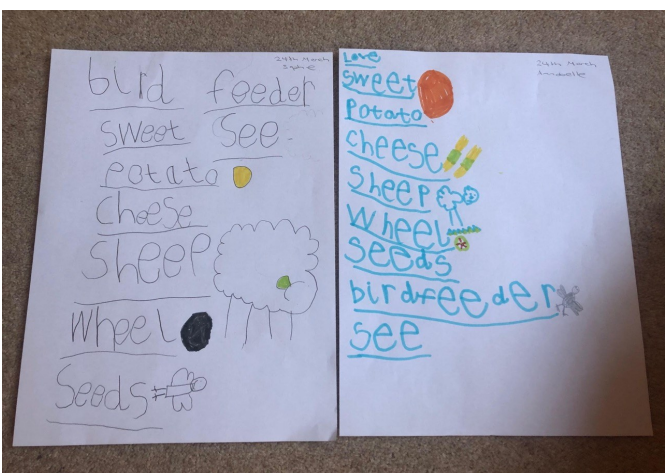 24th March
Sophie
bird feeder
sweet see
potato
cheese
sheep
wheel
seeds
24th March
Annabelle
Love
sweet
potato
cheese
sheep
wheel
seeds
birdfeeder
see